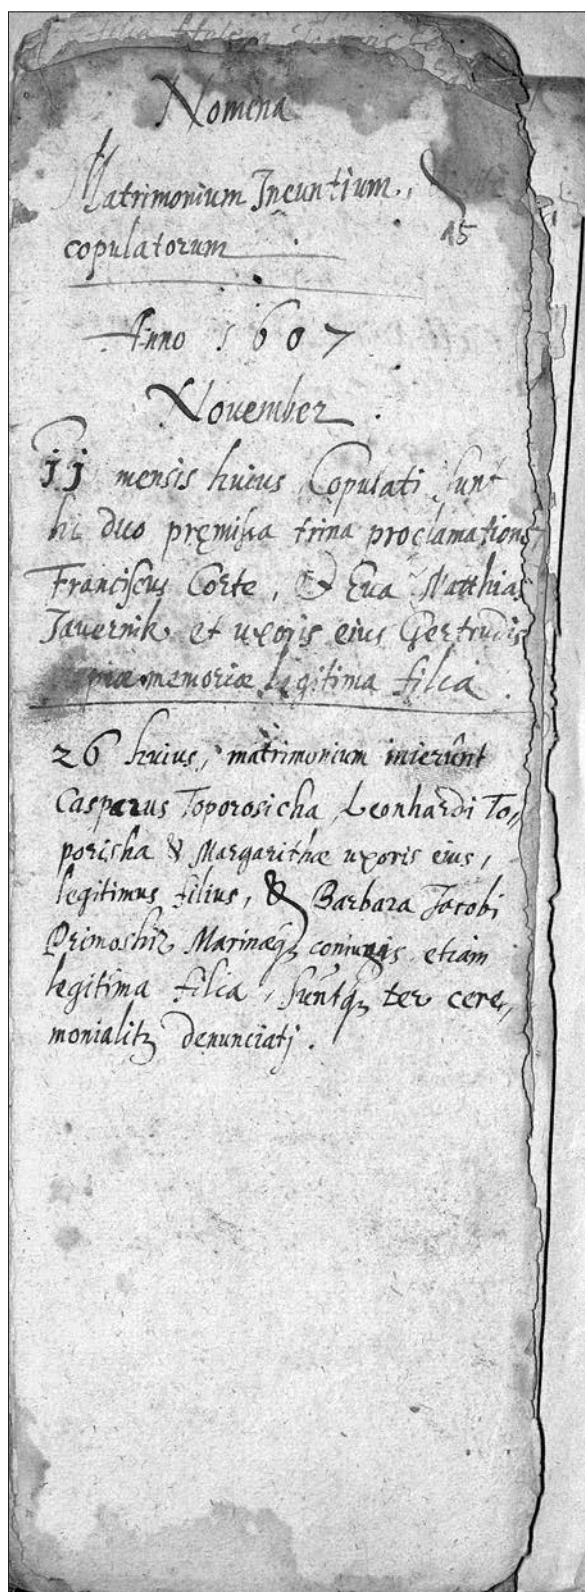 Nomina
Matrimonium Ineuntium,
copulatorum
15
Anno 1607
November
11 mensis huius Copulati sunt
hi duo pręmissa trina proclamatione,
Franciscus Corte, & Eua Matthiae
Javernik et uxoris eius Gertrudis
piæ memoriæ legitima filia.
26 huius, matrimonium inierûnt
Casparus Toporosicha, Leonhardi To„
porisha & Margarithæ uxoris eius,
legitimus filius, & Barbara Jacobi
Primoshiz Marinæq₃ coniugis etiam
legitima filia, suntq₃ ter cere„
monialit₃ denunciatj.